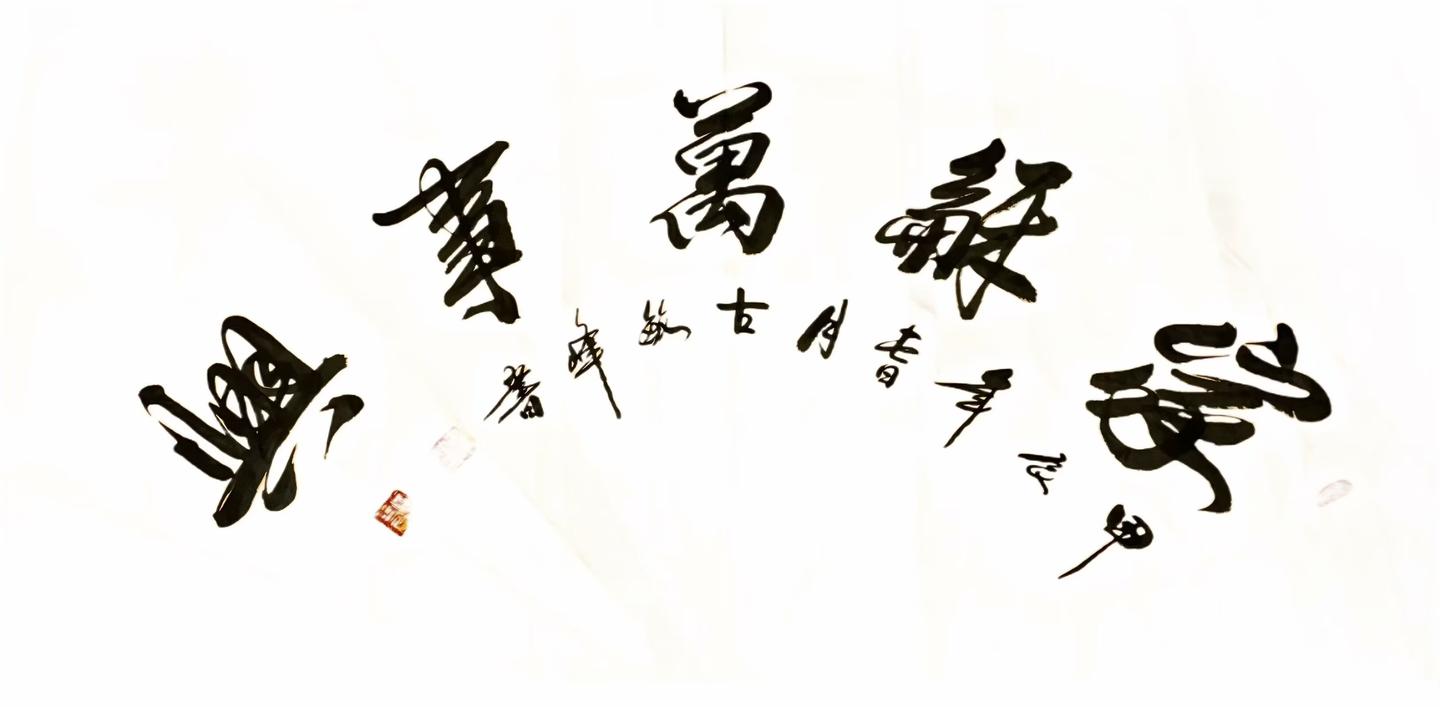 家龢萬事興
甲辰年春月古峰書